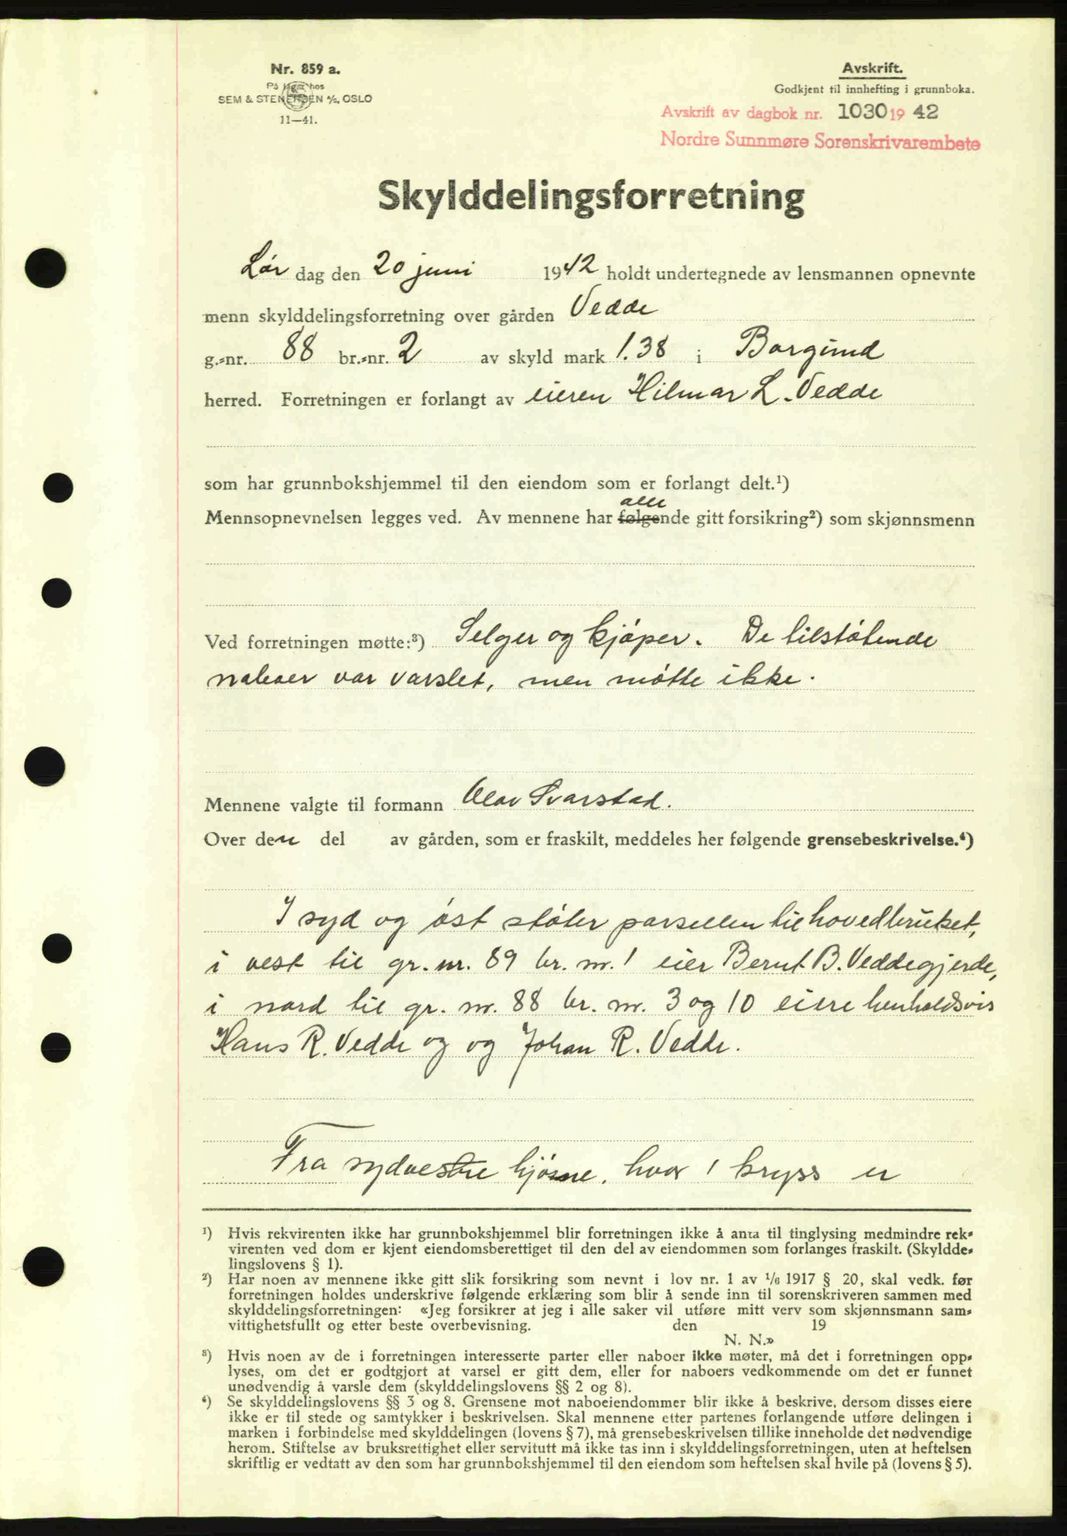 Nr. 859 a.
På lager hos
SEM & STENERSEN A/S, OSLO
11—41.
Avskrift.
Godkjent til innhefting i grunnboka.
Avskrift av dagbok nr. 1030 19 42
Nordre Sunnmøre Sorenskrivarembete
Skylddelingsforretning
Lør dag den 20 juni 1942 holdt undertegnede av lensmannen opnevnte
menn skylddelingsforretning over gården Vedde
g.-nr. 88 br.-nr. 2 av skyld mark 1.38 i Borgund
herred. Forretningen er forlangt av eieren Hilmar L. Vedde
som har grunnbokshjemmel til den eiendom som er forlangt delt.¹)
alle
Mennsopnevnelsen legges ved. Av mennene har følgende gitt forsikring²) som skjønnsmenn
Ved forretningen møtte:³) Selger og kjøper. De tilstøtende
naboer var varslet, men møtte ikke.
Mennene valgte til formann Olav Svarstad.
Over den del av gården, som er fraskilt, meddeles her følgende grensebeskrivelse.⁴)
I syd og øst støter parsellen til hovedbruket,
i vest til gr. nr. 89 br. nr. 1 eier Bernt B. Veddegjerde,
i nord til gr. nr. 88 br. nr. 3 og 10 eiere henholdsvis
Hans R. Vedde og og Johan R. Vedde.
Fra sydvestre hjørne, hvor 1 kryss er
¹) Hvis rekvirenten ikke har grunnbokshjemmel blir forretningen ikke å anta til tinglysing medmindre rek-
virenten ved dom er kjent eiendomsberettiget til den del av eiendommen som forlanges fraskilt. (Skyldde-
lingslovens § 1).
²) Har noen av mennene ikke gitt slik forsikring som nevnt i lov nr. 1 av 1/6 1917 § 20, skal vedk. før
forretningen holdes underskrive følgende erklæring som blir å sende inn til sorenskriveren sammen med
skylddelingsforretningen: «Jeg forsikrer at jeg i alle saker vil utføre mitt verv som skjønnsmann sam-
vittighetsfullt og etter beste overbevisning. den 19
N. N.»
³) Hvis noen av de i forretningen interesserte parter eller naboer ikke møter, må det i forretningen opp-
lyses, om det er godtgjort at varsel er gitt dem, eller for naboers vedkommende om det er funnet
unødvendig å varsle dem (skylddelingslovens §§ 2 og 8).
⁴) Se skylddelingslovens §§ 3 og 8. Grensene mot naboeiendommer blir ikke å beskrive, dersom disses eiere
ikke er til stede og samtykker i beskrivelsen. Skal mennene etter partenes forlangende utføre delingen i
marken i forbindelse med skylddelingen (lovens § 7), må grensebeskrivelsen tillike inneholde det nødvendige
herom. Stiftelse av bruksrettighet eller servitutt må ikke tas inn i skylddelingsforretningen, uten at heftelsen
skriftlig er vedtatt av den som har grunnbokshjemmel til den eiendom som heftelsen skal hvile på (lovens § 5).